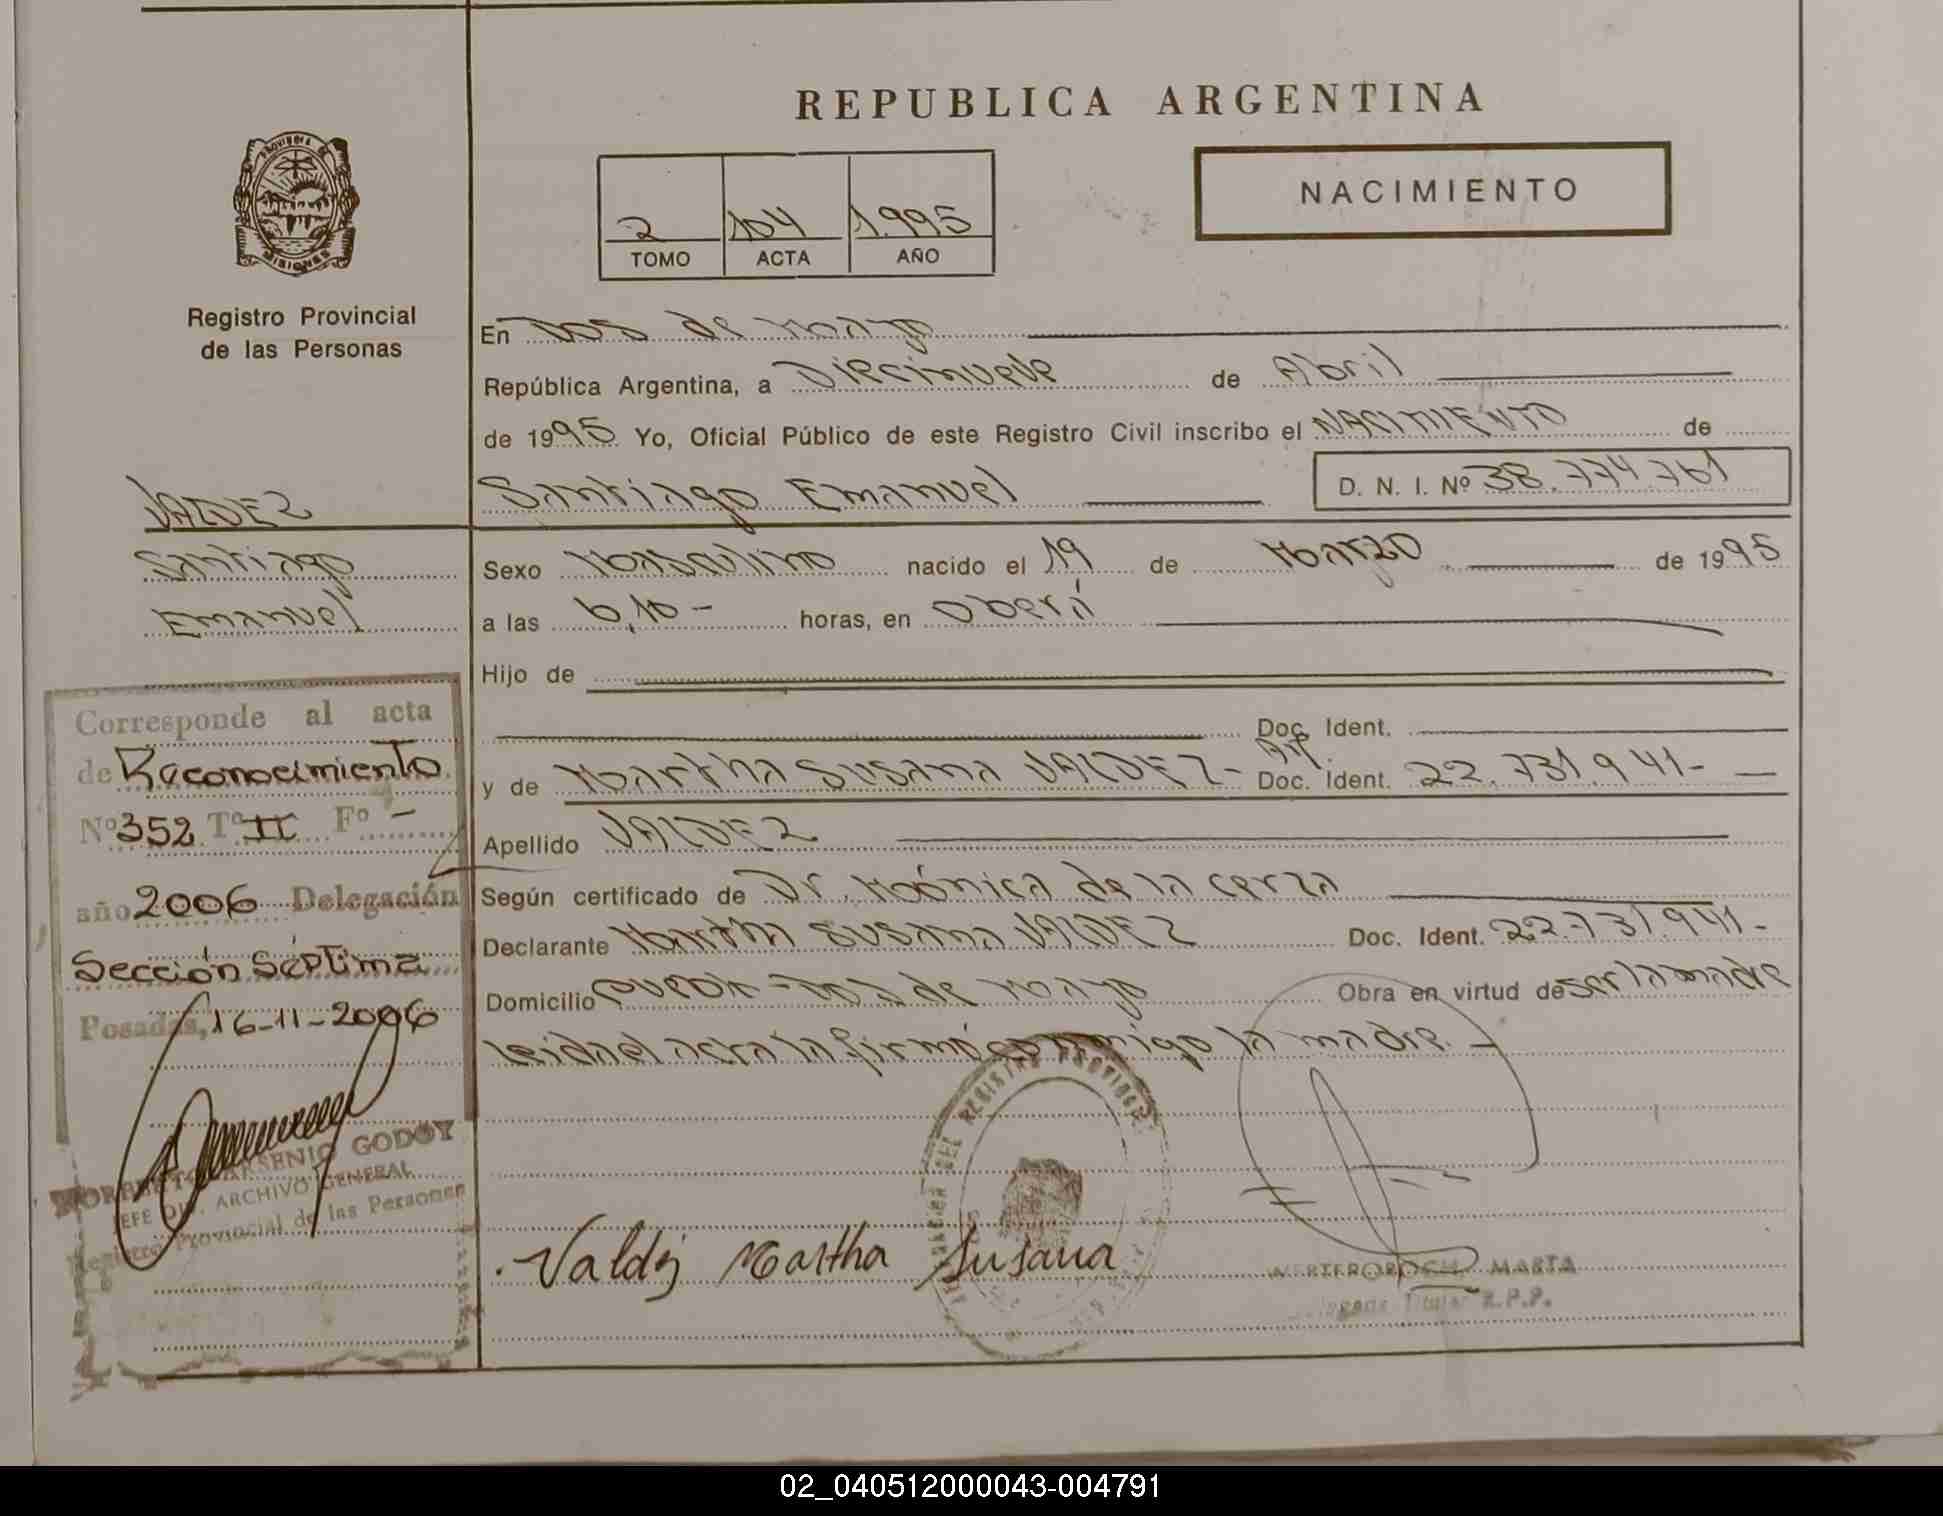 REPUBLICA ARGENTINA
PROVINCIA DE
MISIONES
Registro Provincial
de las Personas
2 104 1.995
TOMO ACTA AÑO
NACIMIENTO
En Dos de Mayo
República Argentina, a Diecinueve de Abril
de 1995 Yo, Oficial Público de este Registro Civil inscribo el NACIMIENTO de
Santiago Emanuel D. N. I. Nº 38.774.761
VALDEZ
Santiago
Emanuel
Sexo Masculino nacido el 19 de Marzo de 1995
a las 6,10- horas, en Oberá
Hijo de
Doc. Ident.
y de Martha Susana VALDEZ- Doc. Ident. 22.731.941-
Apellido VALDEZ
Según certificado de Dr. Mónica de la Cerza
Declarante Martha Susana VALDEZ Doc. Ident. 22.731.941-
Domicilio - Dos de Mayo Obra en virtud de ser la madre
leida el acta la firmó conmigo la madre.-
Corresponde al acta
de Reconocimiento
Nº 352 Tº II Fº -
año 2006 Delegación
Sección Séptima
Posadas, 16-11-2006
NORBERTO ARSENIO GODOY
JEFE DIV. ARCHIVO GENERAL
Registro Provincial de las Personas
DEL REGISTRO PROVINCIAL
Valdez Martha Susana
MARTA
Titular R.P.P.
02_040512000043-004791